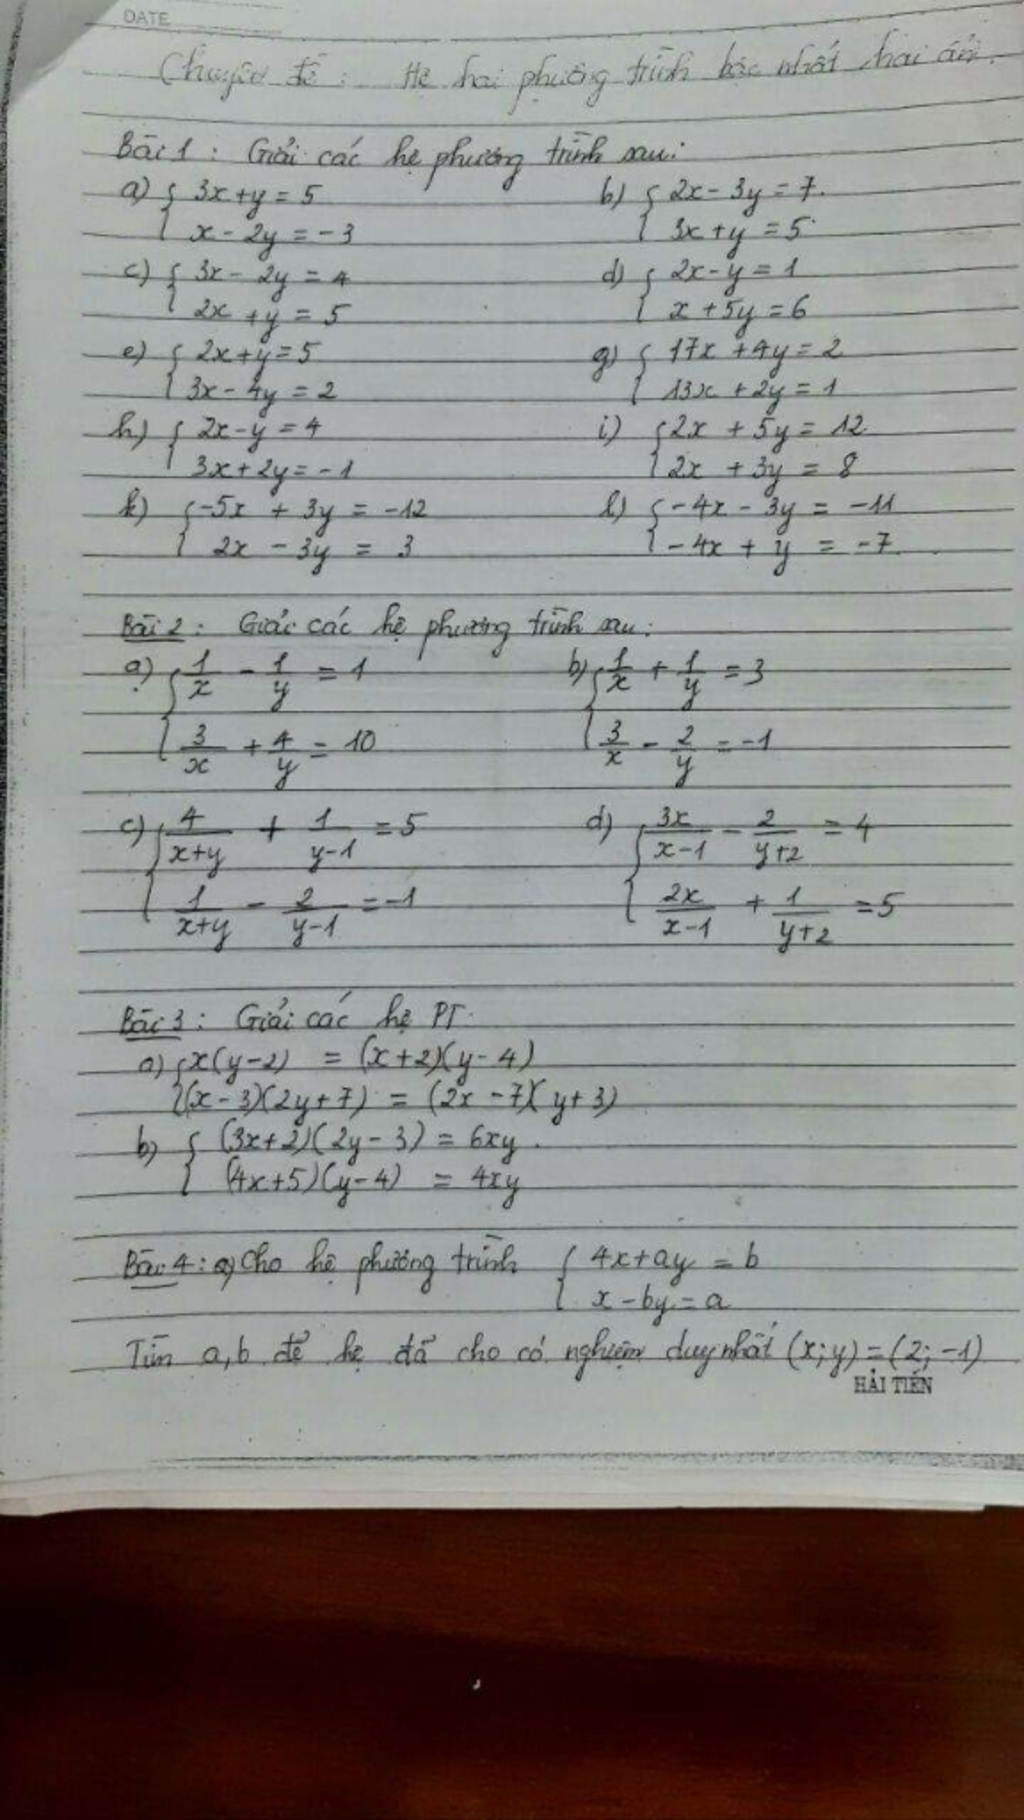 DATE
Chuyên đề : Hệ hai phương trình bậc nhất hai ẩn.
Bài 1 : Giải các hệ phương trình sau:
a) { 3x+y = 5 b) { 2x - 3y = 7.
x - 2y = -3 3x+y = 5
c) { 3x - 2y = 4 d) { 2x - y = 1
2x + y = 5 x + 5y = 6
e) { 2x+y = 5 g) { 17x + 4y = 2
3x - 4y = 2 13x + 2y = 1
h) { 2x - y = 4 i) { 2x + 5y = 12
3x + 2y = -1 2x + 3y = 8
k) { -5x + 3y = -12 l) { -4x - 3y = -11
2x - 3y = 3 -4x + y = -7.
Bài 2 : Giải các hệ phương trình sau:
a) { 1/x - 1/y = 1 b) { 1/x + 1/y = 3
3/x + 4/y = 10 3/x - 2/y = -1
c) { 4/(x+y) + 1/(y-1) = 5 d) { 3x/(x-1) - 2/(y+2) = 4
1/(x+y) - 2/(y-1) = -1 2x/(x-1) + 1/(y+2) = 5
Bài 3 : Giải các hệ PT.
a) { x(y-2) = (x+2)(y-4)
(x-3)(2y+7) = (2x-7)(y+3)
b) { (3x+2)(2y-3) = 6xy.
(4x+5)(y-4) = 4xy
Bài 4 : a) Cho hệ phương trình { 4x+ay = b
x - by = a
Tìm a,b để hệ đã cho có nghiệm duy nhất (x;y) = (2; -1)
HẢI TIẾN